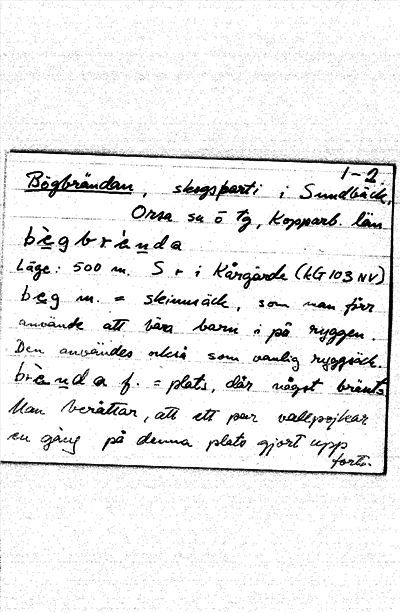 1-2
Bögbrändan, skogsparti i Sundbäck,
Orsa sn o tg, Kopparb. län
bègbrènda
Läge: 500 m. S r i Kårgärde (LG 103 NV)
beg m. = skinnsäck, som man förr
använde att bära barn i på ryggen.
Den användes också som vanlig ryggsäck.
brènda f. = plats, där något bränts
Man berättar, att ett par vallpojkar
en gång på denna plats gjort upp
forts.